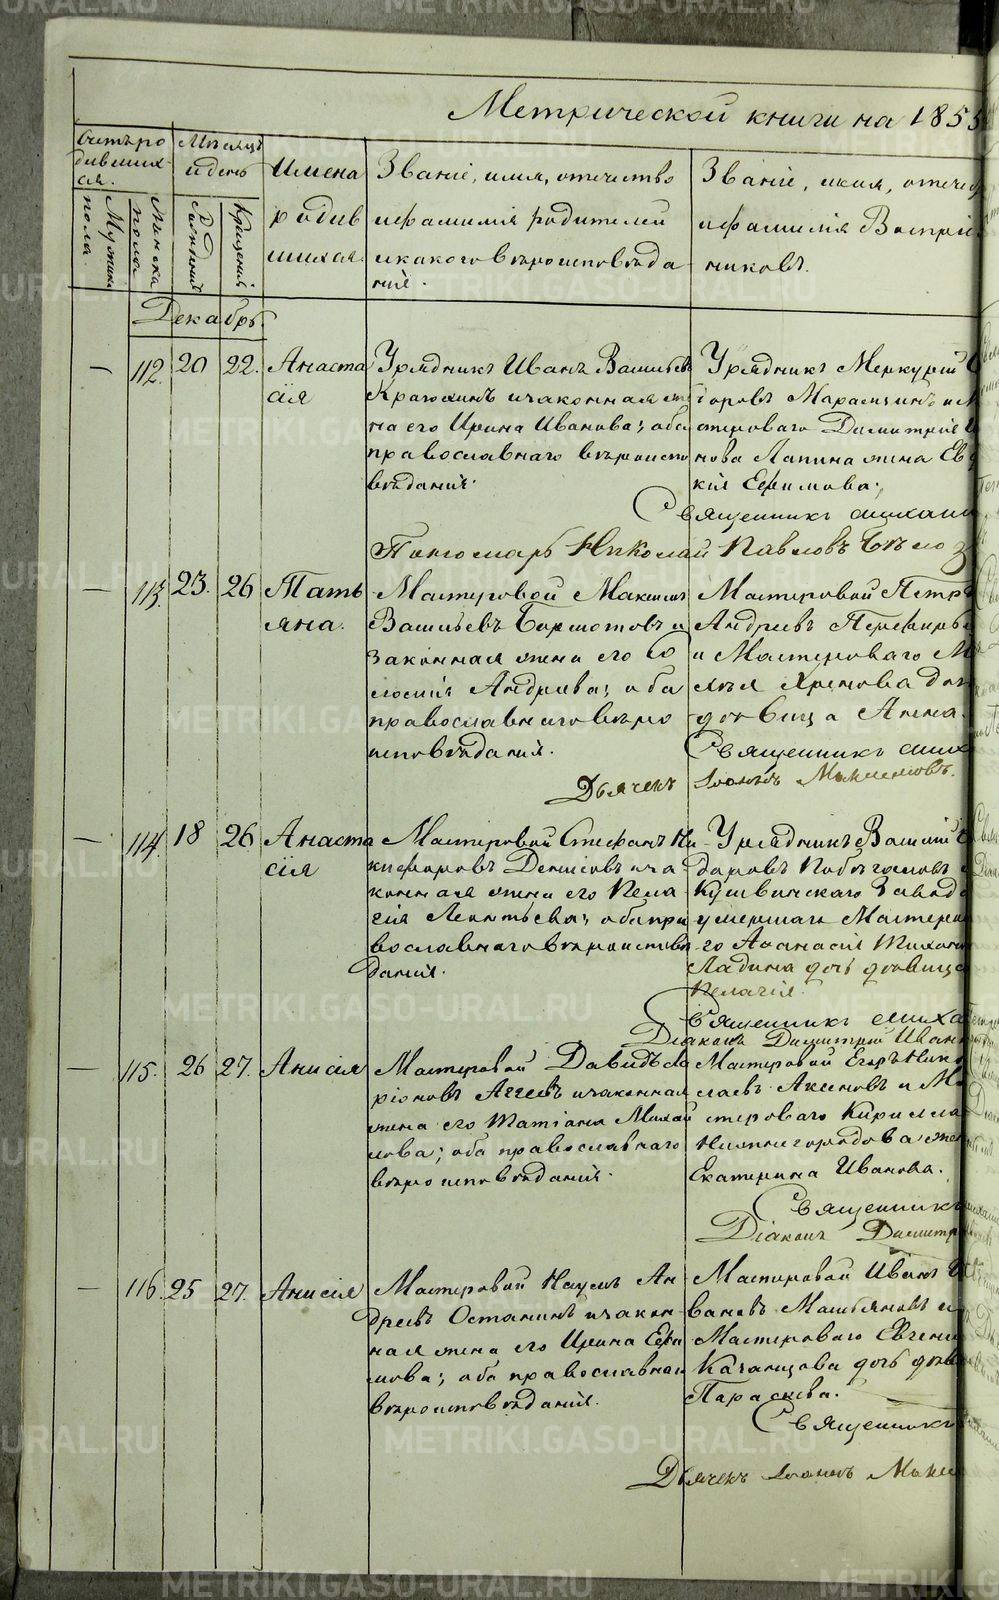 Метрической книги на 1855
Счетъ родившихся.
Мужска пола.
Женска пола
Мѣсяцъ и день
Рожденія
Крещенія
Имена родившихся.
Званіе, имя, отчество и фамилія родителей и какого вѣроисповѣданія.
Званіе, имя, отече
и фамилія Воспріе
никовъ.
Декабрь.
— 112. 20 22. Анаста
сія
Урядникъ Иванъ Васильевъ
и законная же
на его Ирина Иванова; оба
православнаго вѣроиспо
вѣданія.
Урядникъ Меркурій
горовъ и М
стероваго Димитрія И
нова Лапина жена Ев
кія Ефимова.
Священникъ Миха
Пономарь Николай Павловъ Бѣлоз
— 113. 23. 26 Тать
яна.
Мастеровой Максимъ
Васильевъ и
законная жена его Ѳео
досія Андреева; оба
православнаго вѣро
исповѣданія.
Мастеровой Петръ
Андреевъ Перфирье
и Мастероваго М
Хренова доч
дѣвица Анна.
Священникъ Мих
Дьячекъ Іоаннъ Максимовъ.
— 114. 18 26 Анаста
сія
Мастеровой Стефанъ Ни
кифоровъ Денисовъ и за
конная жена его Пела
гія Леонтьева; оба пра
вославнаго вѣроисповѣ
данія.
Урядникъ Василій Ѳ
доровъ
Кушвинскаго Завода
умершаго Мастерова
го Аѳанасія Тихоно
Ладина дочь дѣвица
Пелагія.
Священникъ Миха
Діаконъ Димитрій Иван
— 115. 26 27. Анисія
Мастеровой Давидъ Ла
ріоновъ Агеевъ и законная
жена его Татіана Михай
лова; оба православнаго
вѣроисповѣданія.
Мастеровой Егоръ Нико
лаевъ Аксеновъ и Ма
стероваго Кирилла
Нижнегородова жен
Екатерина Иванова.
Священникъ
Діаконъ Димитр
— 116. 25 27. Анисія
Мастеровой Наумъ Ан
дреевъ Останинъ и закон
ная жена его Ирина Ефи
мова; оба православнаго
вѣроисповѣданія.
Мастеровой Иванъ И
вановъ и
Мастероваго Евгені
Качанцова дочь дѣви
Параскева.
Священникъ
Дьячекъ Іоаннъ Макси
METRIKI.GASO-URAL.RU